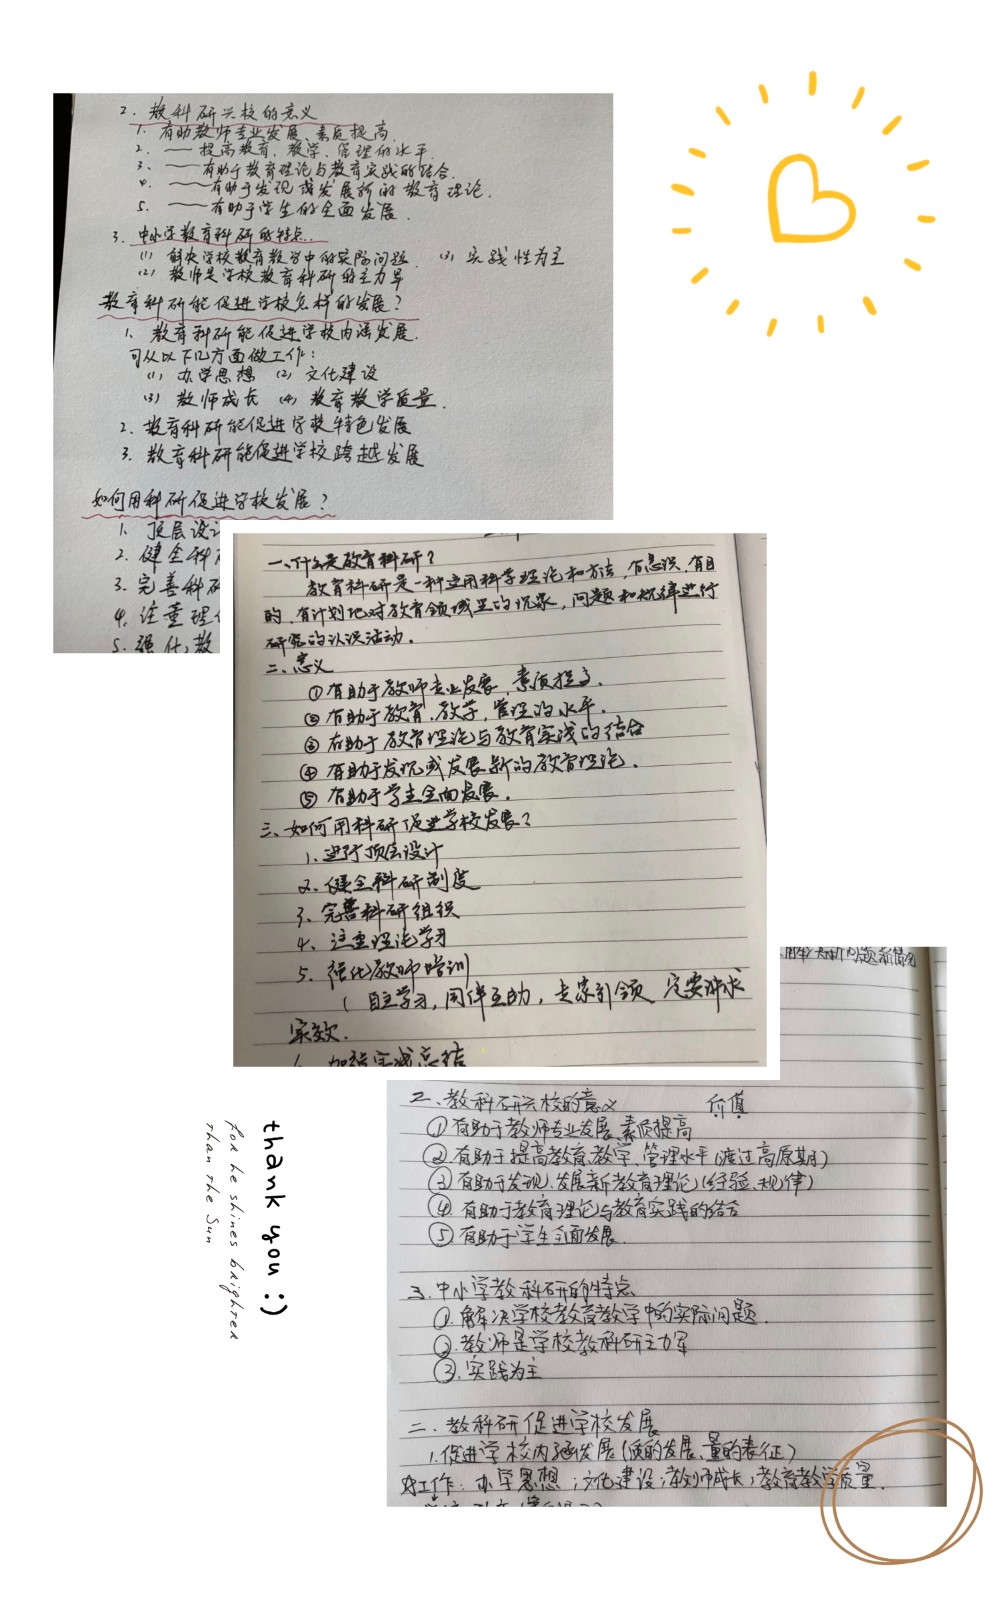 2. 教科研兴校的意义
1. 有助教师专业发展、素质提高.
2. —— 提高教育、教学、管理的水平.
3. ——有助于教育理论与教育实践的结合.
4. ——有助于发现或发展新的教育理论.
5. ——有助于学生的全面发展.
3. 中小学教育科研的特点...
(1) 解决学校教育教学中的实际问题. (3) 实践性为主
(2) 教师是学校教育科研的主力军
教育科研能促进学校怎样的发展?
1. 教育科研能促进学校内涵发展.
可从以下几方面做工作:
(1) 办学思想 (2) 文化建设
(3) 教师成长 (4) 教育教学质量.
2. 教育科研能促进学校特色发展
3. 教育科研能促进学校跨越发展
如何用科研促进学校发展?
1. 顶层设
2. 健全科
3. 完善科研
4. 注重理
5. 强化教
一、什么是教育科研?
教育科研是一种运用科学理论和方法,有意识,有目
的,有计划地对教育领域里的现象,问题和规律进行
研究的认识活动.
二、意义
①有助于教师专业发展、素质提高.
②有助于教育、教学,管理的水平.
③有助于教育理论与教育实践的结合
④有助于发现或发展新的教育理论.
⑤有助于学生全面发展.
三、如何用科研促进学校发展?
1. 进行顶层设计
2. 健全科研制度
3、完善科研组织
4、注重理论学习
5. 强化教师培训
( 自主学习,同伴互助,专家引领 一定要讲求
实效.
加强实践总结
二、教科研兴校的意义 价值
①有助于教师专业发展、素质提高
②有助于提高教育、教学、管理水平(渡过高原期)
③有助于发现、发展新教育理论(经验、规律)
④有助于教育理论与教育实践的结合
⑤有助于学生全面发展.
3. 中小学教科研的特点
①. 解决学校教育教学中的实际问题.
②. 教师是学校教科研主力军
③. 实践为主
二、教科研促进学校发展
1. 促进学校内涵发展(质的发展、量的表征)
工作: 办学思想;文化建设;教师成长;教育教学质量.
thank you :)
for he shines brighter
than the sun